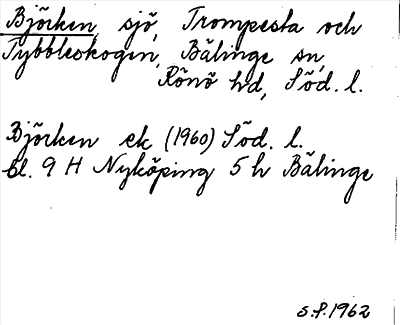 Björken, sjö, Trompesta och
Tybbleskogen, Bälinge sn,
Rönö hd, Söd. l.
Björken ek (1960) Söd. l.
bl. 9 H Nyköping 5 h Bälinge
S.P. 1962